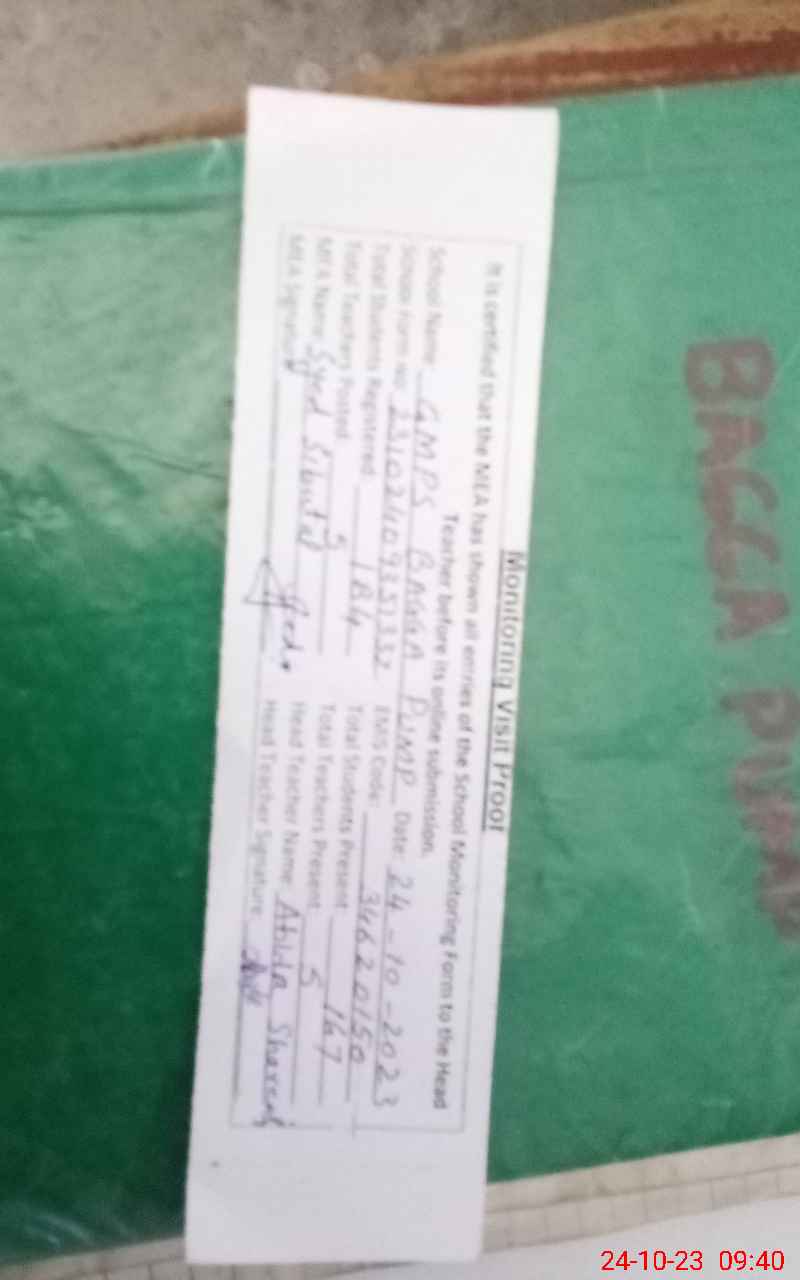 Monitoring Visit Proof
It is certified that the MEA has shown all entries of the School Monitoring Form to the Head
Teacher before its online submission.
School Name: GMPS BAGGA PUMP Date: 24-10-2023
School Form no: EMIS Code: 34620150
Total Students Registered: 184 Total Students Present: 167
Total Teachers Posted: 5 Total Teachers Present: 5
MEA Name: Syed Head Teacher Name:
MEA Signature Head Teacher Signature
BAGGA PUMP
24-10-23 09:40